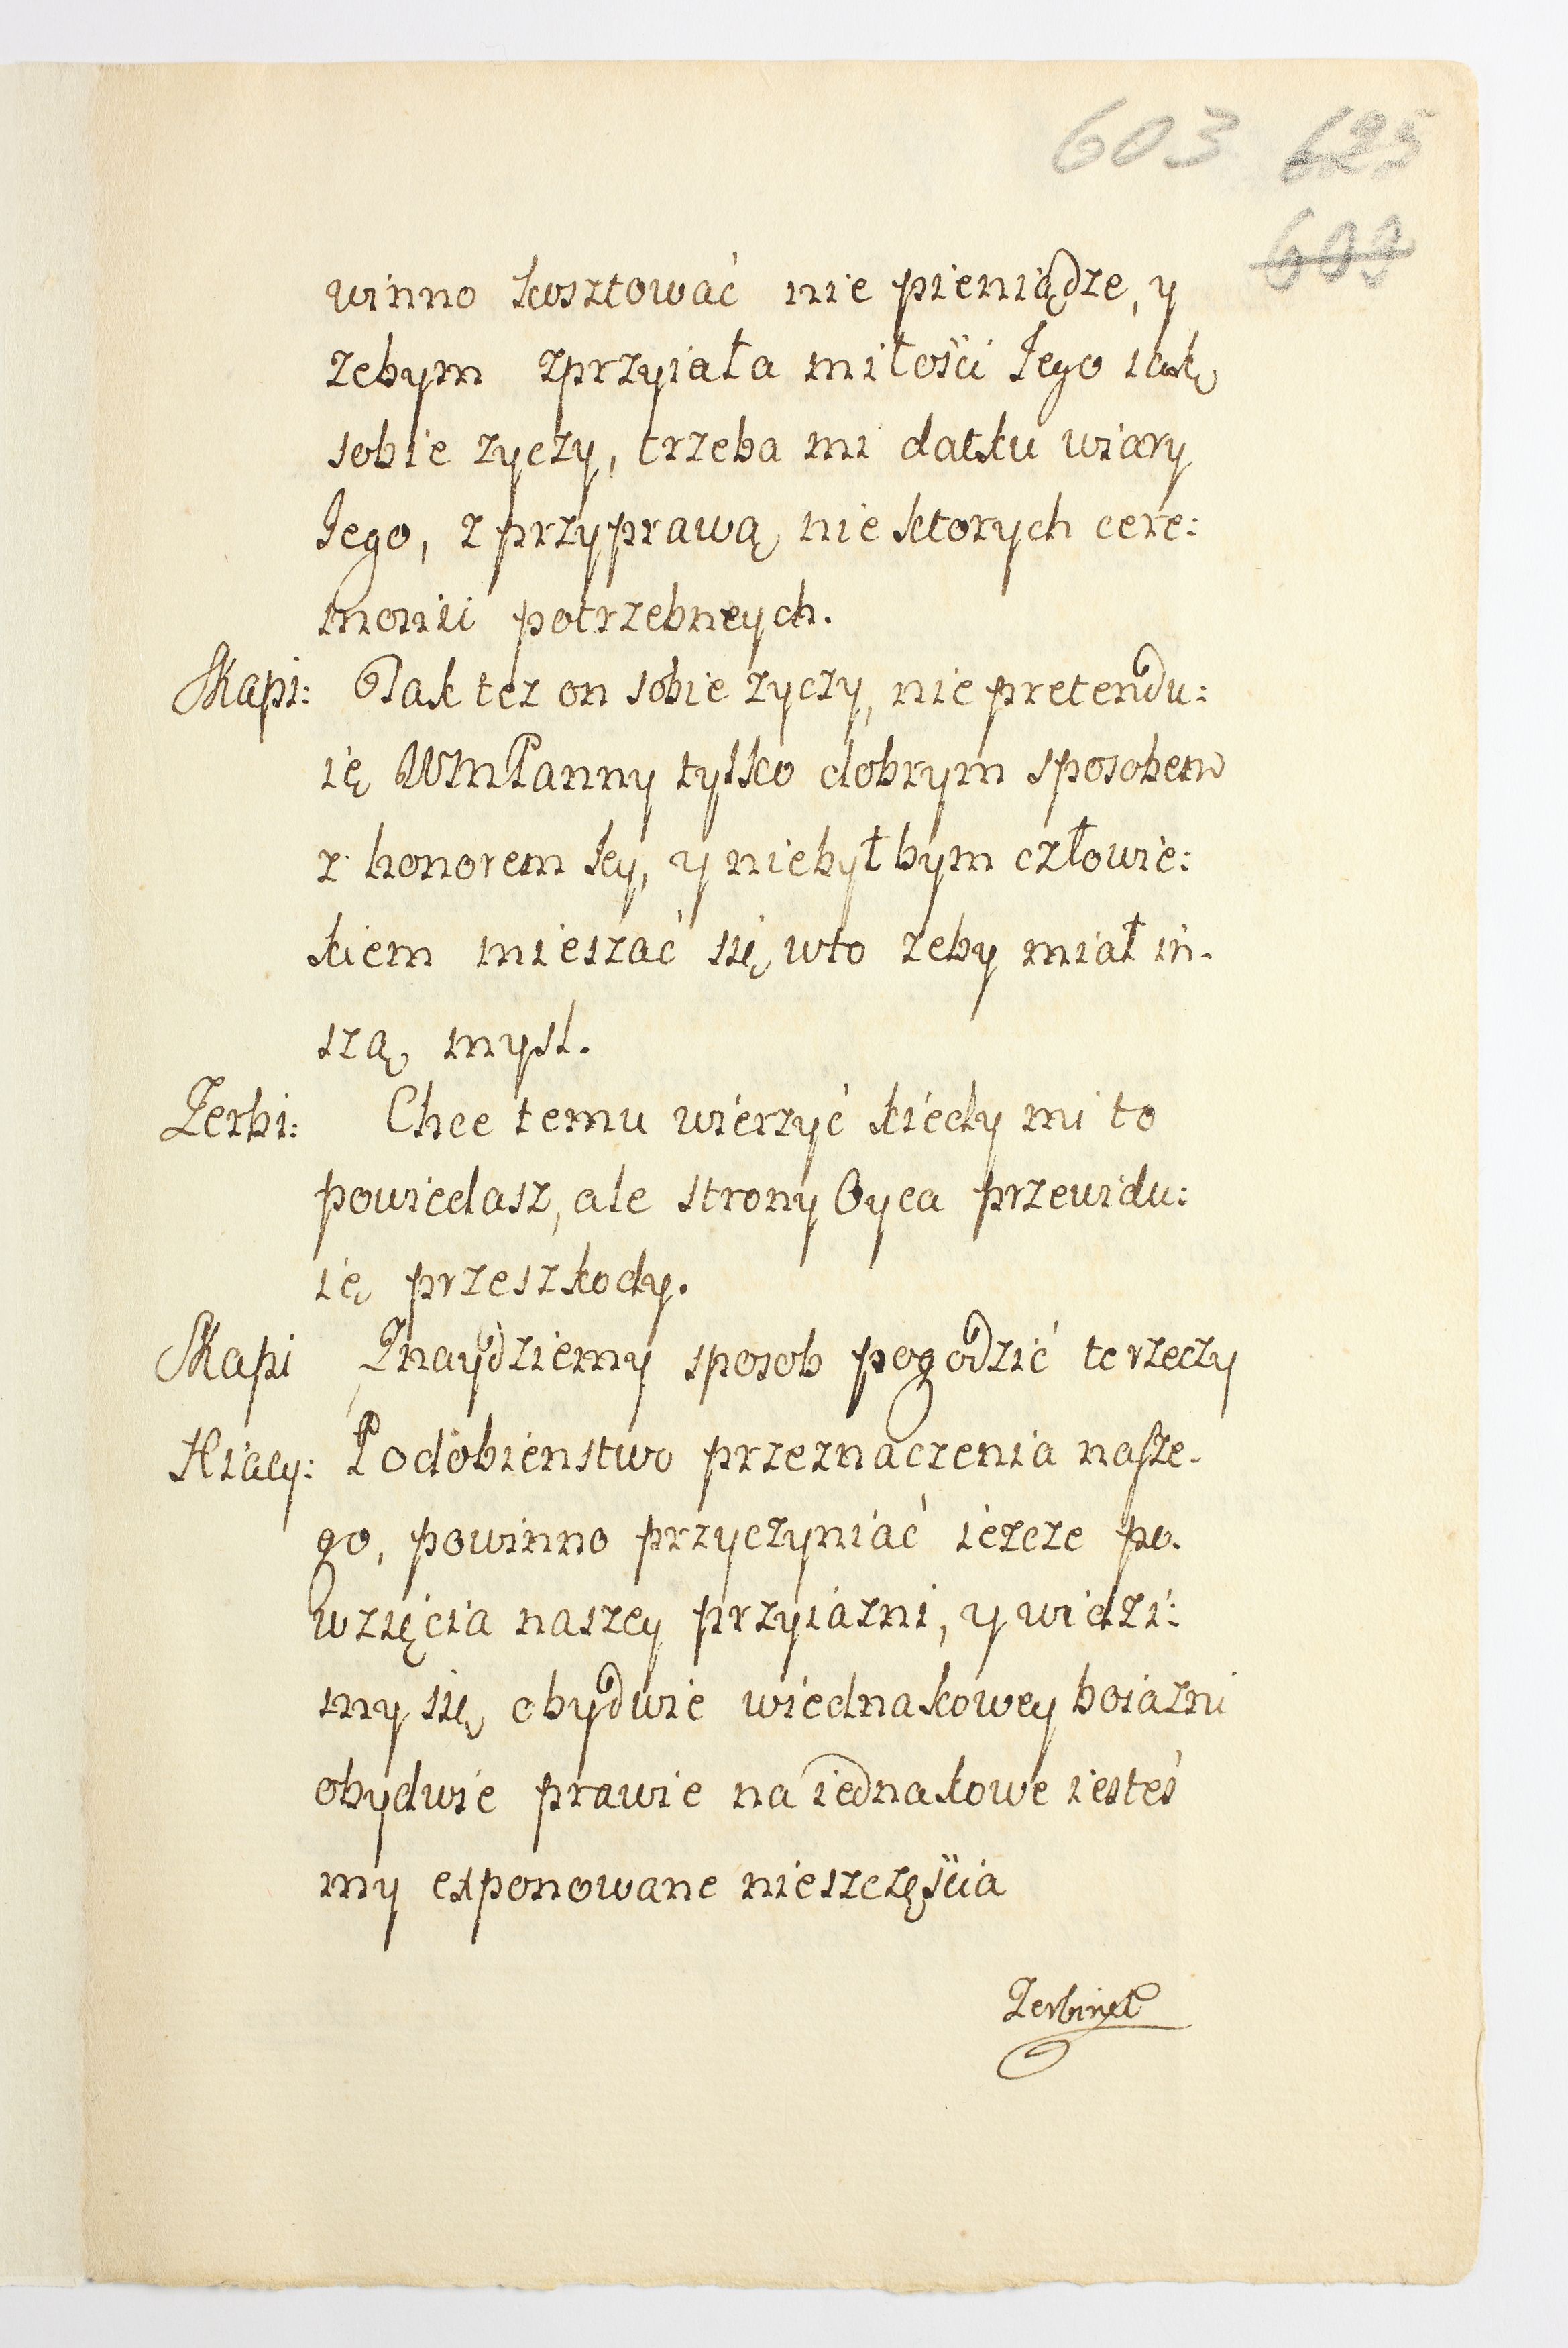 603 625
609
winno kosztować nie pieniądze, y
zebym zprzyiała miłosci Jego iak
sobie zyczy, trzeba mi datku wiary
Jego, z przyprawą nie ktorych cere:
monii potrzebneych.
Skapi: Tak tez on sobie zyczy, nie pretendu:
ię WMPanny tylko dobrym sposobem
z honorem Jey, y niebył bym człowie:
kiem mieszać się wto zeby miał in-
szą mysl.
Zerbi: Chce temu wierzyć kiedy mi to
powiedasz, ale strony Oyca przewidu:
ię przeszkody.
Skapi Znaydziemy sposob pogodzić te rzeczy
Hiacy: Podobienstwo przeznaczenia nasze-
go, powinno przyczyniać iezcze po-
wzięcia naszey przyiazni, y widzi:
my się obydwie wiednakowey boiazni
obydwie prawie na iednakowe iesteś
my exponowane nieszczęscia
Zerbinet